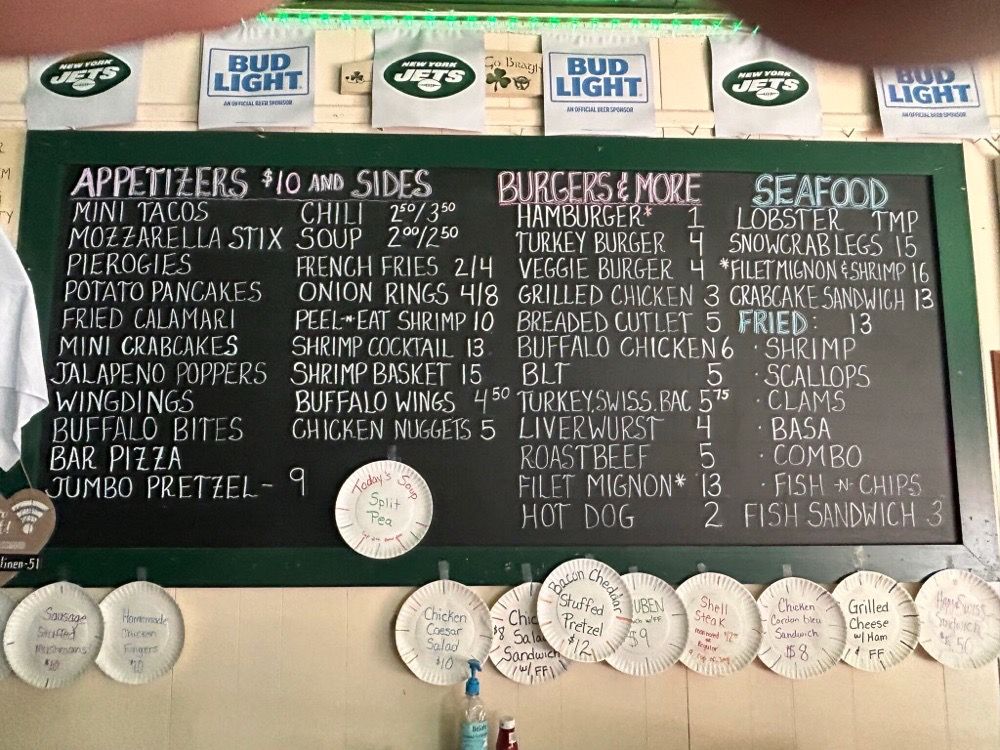 NEW YORK
JETS
BUD
LIGHT
AN OFFICIAL BEER SPONSOR
NEW YORK
JETS
Go Bragh
BUD
LIGHT
AN OFFICIAL BEER SPONSOR
NEW YORK
JETS
BUD
LIGHT
AN OFFICIAL BEER SPONSOR
APPETIZERS $10 AND SIDES
MINI TACOS
MOZZARELLA STIX
PIEROGIES
POTATO PANCAKES
FRIED CALAMARI
MINI CRABCAKES
JALAPENO POPPERS
WINGDINGS
BUFFALO BITES
BAR PIZZA
JUMBO PRETZEL - 9
CHILI 250/350
SOUP 200/250
FRENCH FRIES 2/4
ONION RINGS 4/8
PEEL-N-EAT SHRIMP 10
SHRIMP COCKTAIL 13
SHRIMP BASKET 15
BUFFALO WINGS 450
CHICKEN NUGGETS 5
BURGERS & MORE
HAMBURGER* 1
TURKEY BURGER 4
VEGGIE BURGER 4
GRILLED CHICKEN 3
BREADED CUTLET 5
BUFFALO CHICKEN 6
BLT 5
TURKEY.SWISS.BAC 575
LIVERWURST 4
ROASTBEEF 5
FILET MIGNON* 13
HOT DOG 2
SEAFOOD
LOBSTER TMP
SNOWCRAB LEGS 15
*FILET MIGNON & SHRIMP 16
CRABCAKE SANDWICH 13
FRIED: 13
· SHRIMP
· SCALLOPS
· CLAMS
· BASA
· COMBO
· FISH -N- CHIPS
FISH SANDWICH 3
Today's Soup
Split
Pea
linen-51
Sausage
Stuffed
Mushrooms
$10
Homemade
Chicken
Fingers
$10
Chicken
Caesar
Salad
$10
$8 Salad
Sandwich
w/ FF
Bacon Cheddar
Stuffed
Pretzel
$12
UBEN
w/FF
$9
Shell
Steak
Chicken
Cordon bleu
Sandwich
$8
Grilled
Cheese
w/ Ham
FF